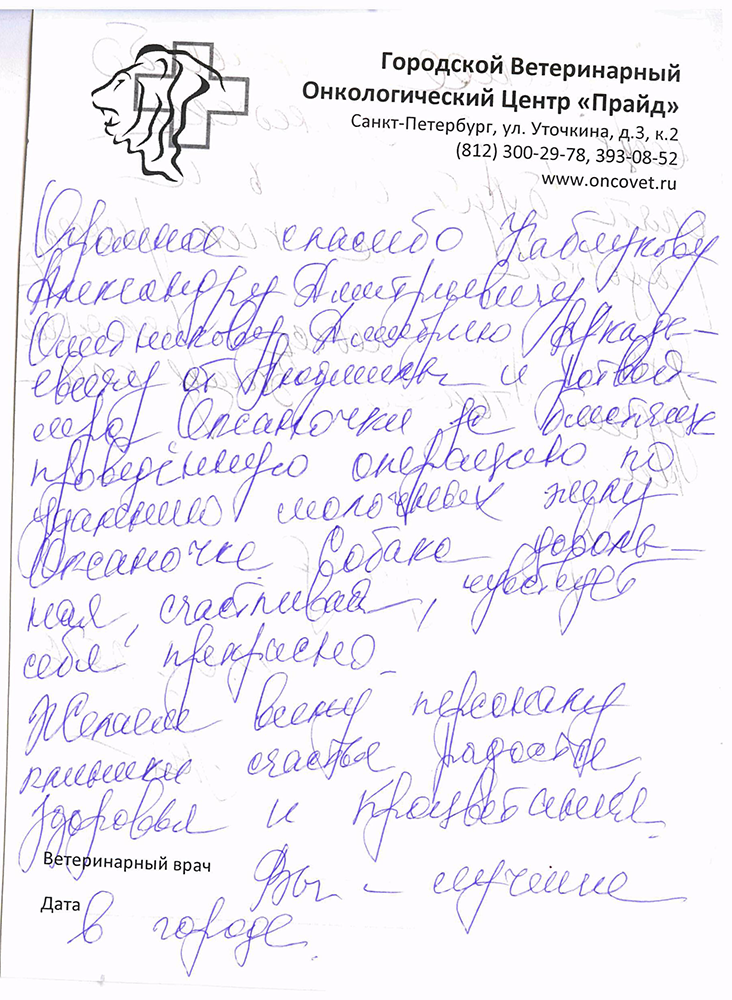 Городской Ветеринарный
Онкологический Центр «Прайд»
Санкт-Петербург, ул. Уточкина, д.3, к.2
(812) 300-29-78, 393-08-52
www.oncovet.ru
Огромное спасибо Каблукову
Александру Дмитриевичу
Дмитрию Аркадь-
евичу от Людмилы и
Оксаночки за отлично
проведённую операцию по
удалению молочных желёз
Оксаночке. Собака доволь-
ная, счастливая, чувствует
себя прекрасно.
Желаем всему персоналу
клиники счастья, радости,
здоровья и процветания.
Ветеринарный врач
Вы - лучшие
Дата
в городе.